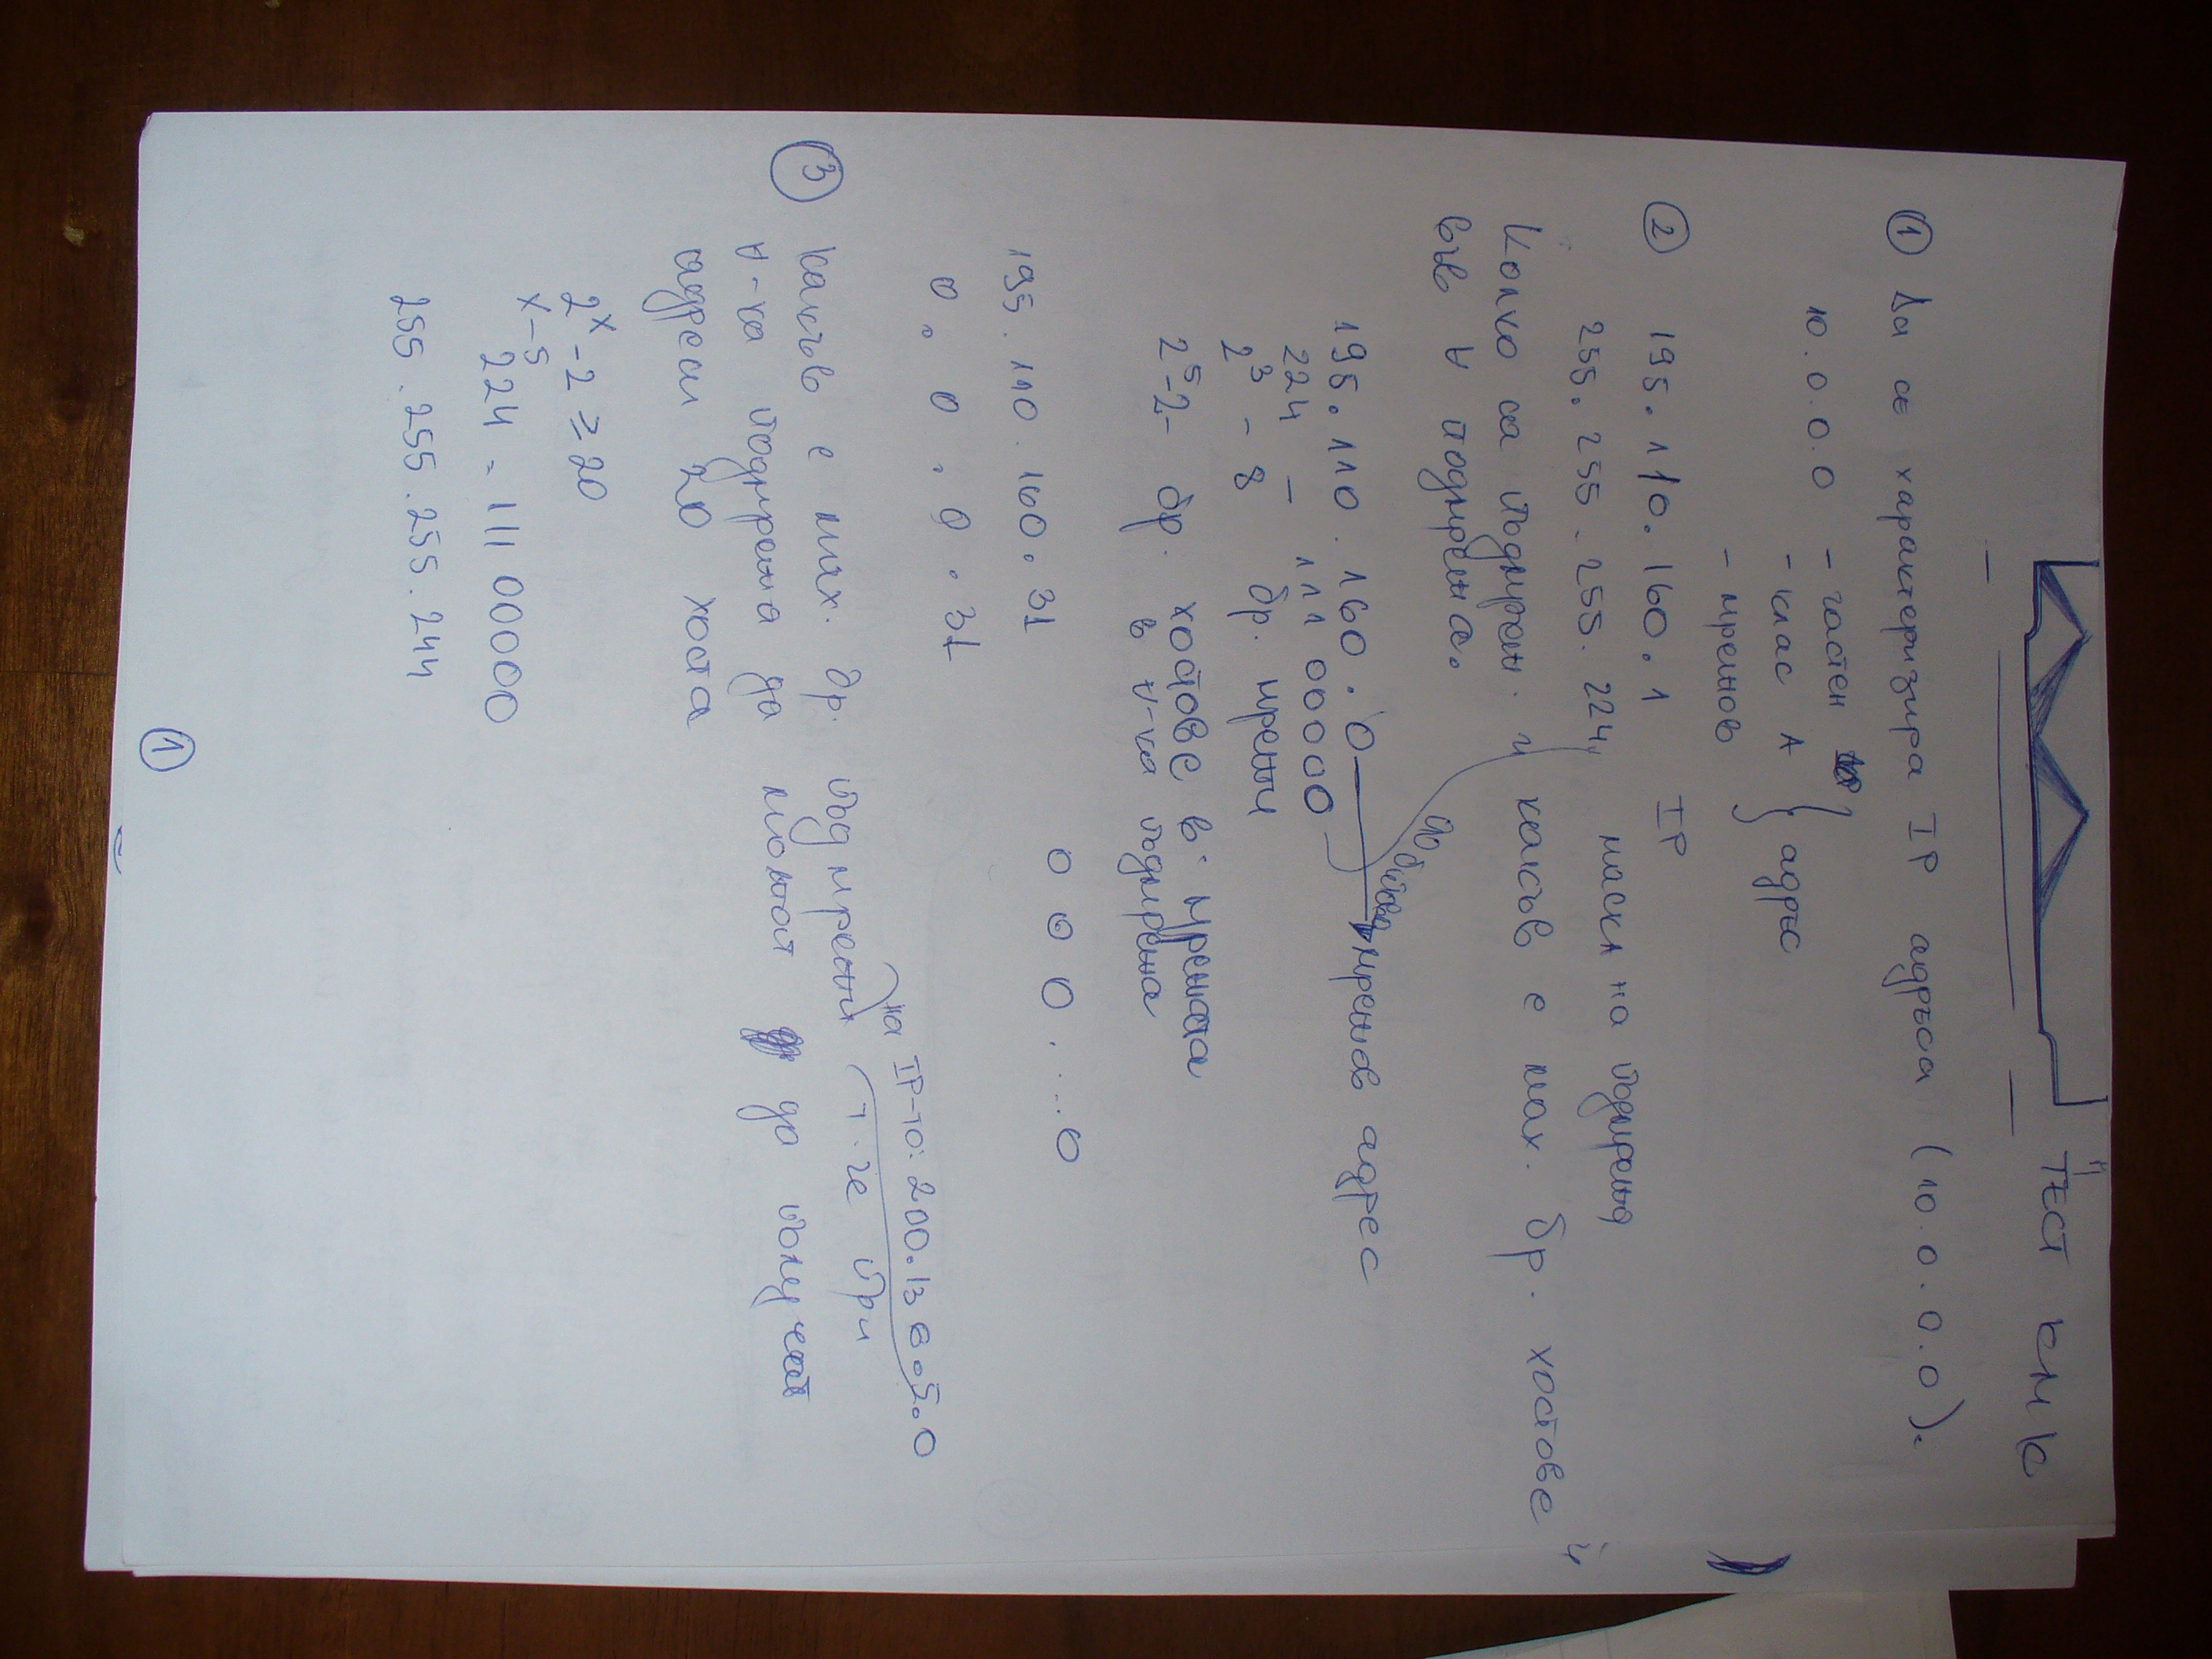 ТЕСТ КМК
① Да се характеризира IP адреса (10.0.0.0).
10.0.0.0 - частен
- клас А } адрес
- мрежов
② 195.110.160.1 IP
255.255.255.224, маска на подмрежа
Колко са подмреж. и какъв е мах. бр. хостове
във ∀ подмрежа.
195.110.160.0 → мрежов адрес
224 - 111 00000
2³ - 8 бр. мрежи
2⁵-2- бр. хостове в мрежата
в ∀-ка подмрежа
0 0 0 . ... 0
195.110.160.31
0.0.0.31
на IP-то: 200.136.5.0
③ Какъв е мах. бр. подмрежи т.че при
∀-ка подмрежа да могат да получат
адреси 20 хоста
2ˣ-2 ≥ 20
x-5
224 = 111 00000
255.255.255.244
①